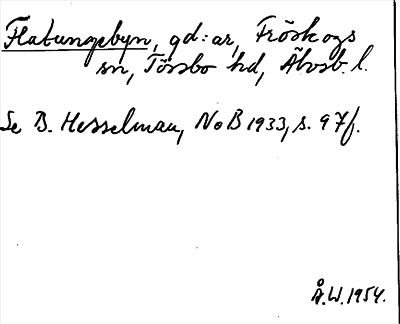 Flatungebyn, gd:ar, Fröskogs
sn, Tössbo hd, Älvsb. l.
Se B. Hesselman, NoB 1933, s. 97f.
Å.W. 1954.